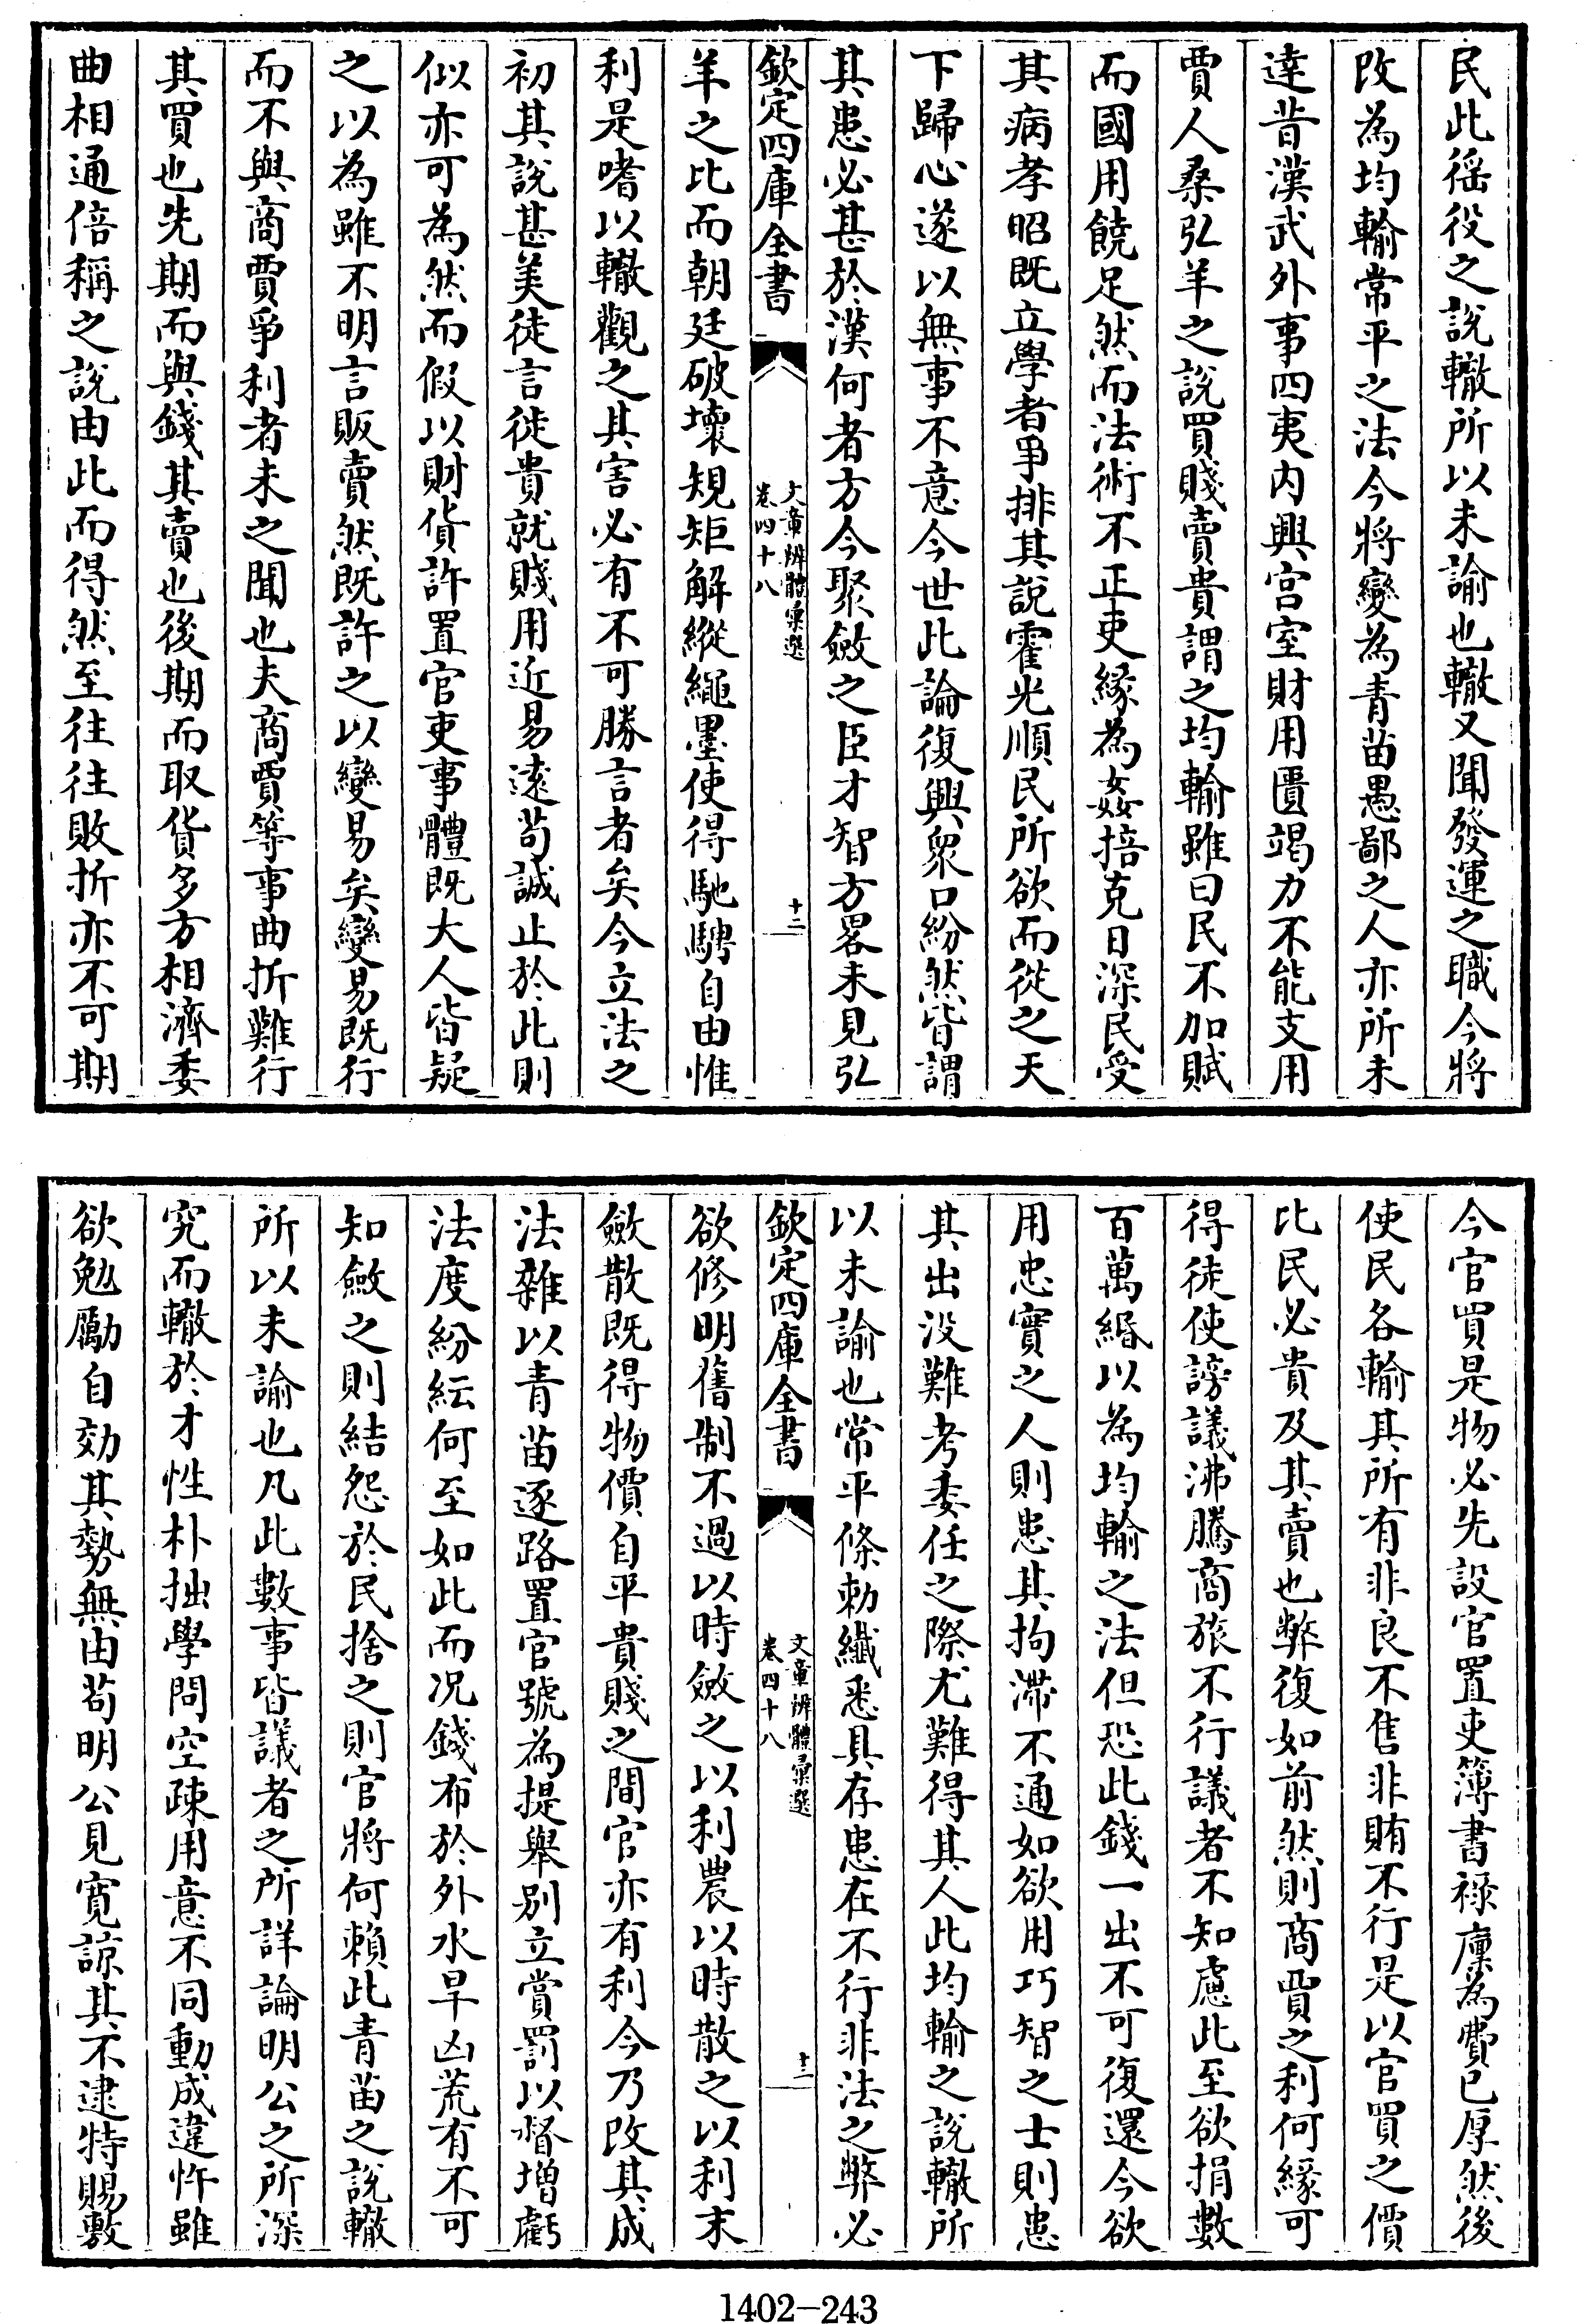 民此徭役之說轍所以未諭也轍又聞發運之職今將
改為均輸常平之法今將變為青苗愚鄙之人亦所未
達昔漢武外事四夷内興宫室財用匱竭力不能支用
賈人桑弘羊之說買賤賣貴謂之均輸雖曰民不加賦
而國用饒足然而法術不正吏緣為姦掊克日深民受
其病孝昭既立學者爭排其說霍光順民所欲而從之天
下歸心遂以無事不意今世此論復興衆口紛然皆謂
其患必甚於漢何者方今聚斂之臣才智方畧未見弘
欽定四庫全書
文章辨體彚選
卷四十八
十二
羊之比而朝廷破壞規矩解縱繩墨使得馳騁自由惟
利是嗜以轍觀之其害必有不可勝言者矣今立法之
初其說甚美徒言徙貴就賤用近易逺苟誠止於此則
似亦可為然而假以財貨許置官吏事體既大人皆疑
之以為雖不明言販賣然既許之以變易矣變易既行
而不與商賈爭利者未之聞也夫商賈等事曲折難行
其買也先期而與錢其賣也後期而取貨多方相濟委
曲相通倍稱之說由此而得然至往往敗折亦不可期
今官買是物必先設官置吏簿書禄廩為費已厚然後
使民各輸其所有非良不售非賄不行是以官買之價
比民必貴及其賣也弊復如前然則商賈之利何緣可
得徒使謗議沸騰商旅不行議者不知慮此至欲捐數
百萬緡以為均輸之法但恐此錢一出不可復還今欲
用忠實之人則患其拘滯不通如欲用巧智之士則患
其出没難考委任之際尤難得其人此均輸之說轍所
以未諭也常平條勅纎悉具存患在不行非法之弊必
欽定四庫全書
文章辨體彚選
卷四十八
十三
欲修明舊制不過以時斂之以利農以時散之以利末
斂散既得物價自平貴賤之間官亦有利今乃改其成
法雜以青苗逐路置官號為提舉别立賞罰以督增虧
法度紛紜何至如此而况錢布於外水旱凶荒有不可
知斂之則結怨於民捨之則官將何賴此青苗之說轍
所以未諭也凡此數事皆議者之所詳論明公之所深
究而轍於才性朴拙學問空疎用意不同動成違忤雖
欲勉勵自効其勢無由苟明公見寛諒其不逮特賜敷
1402-243